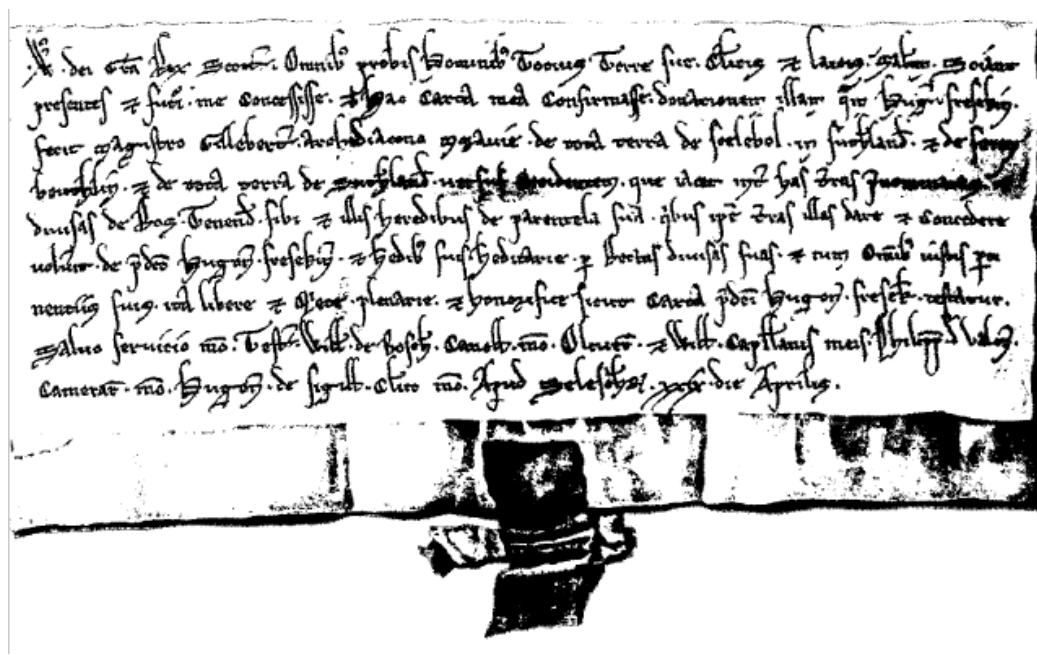 W. dei Gra Rex Scott. Omnib' probis hominib' Tocius Terre sue. Clicis & laicis. Salt'm. Sciant
presentes & futi. me Concessisse. & Hac Carta mea Confirmasse. donationem illam q'm Hug. fresekin.
fecit magistro Gilleberto. archidiacono Moravie. de tota terra de scelebol. in suthland. & de
& de tota terra de Suthland. que iacet int' has t'ras
divisas de Ros. Tenend. sibi & illis heredibus de parentela sua. q'bus ipe t'ras illas dare & Concedere
voluerit. de p'dco Hugon. fresekin. & hedib' suis heditarie. p Rectas divisas suas. & cum Omnib' iustis p'ti
nentiis suis. ita libere & Qete. plenarie. & honorifice sicut Carta p'dci Hugon. fresek. testatur.
Salvo servicio mo. Test. Willo. de Bosch. Cancell. mo. Oliuero. & Willo. Capellanis meis. Philipp. d Valon.
Camerar. mo. Hugon. de sigillo. Clico mo. Apud Seleschir. xxix. die Aprilis.